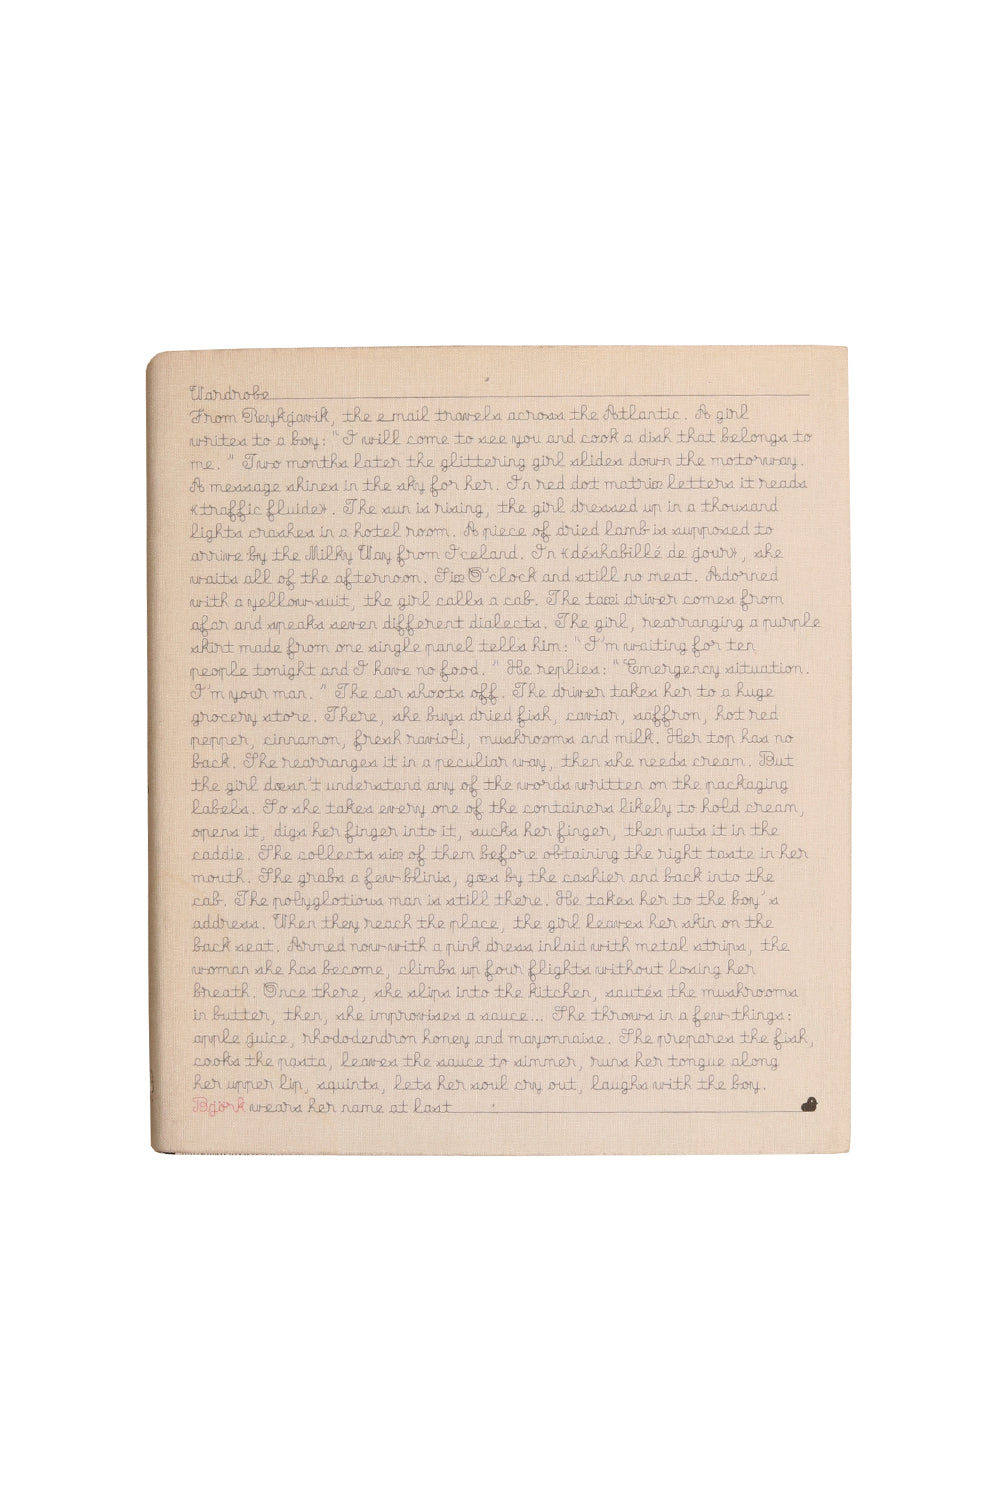 Wardrobe
From Reykjavik, the email travels across the Atlantic. A girl
writes to a boy: "I will come to see you and cook a dish that belongs to
me." Two months later the glittering girl slides down the motorway.
A message shines in the sky for her. In red dot matrix letters it reads
«traffic fluide». The sun is rising, the girl dressed up in a thousand
lights crashes in a hotel room. A piece of dried lamb is supposed to
arrive by the Milky Way from Iceland. In «déshabillé de jour», she
waits all of the afternoon. Six O'clock and still no meat. Adorned
with a yellow suit, the girl calls a cab. The taxi driver comes from
afar and speaks seven different dialects. The girl, rearranging a purple
skirt made from one single panel tells him: "I'm waiting for ten
people tonight and I have no food." He replies: "Emergency situation.
I'm your man." The car shoots off. The driver takes her to a huge
grocery store. There, she buys dried fish, caviar, saffron, hot red
pepper, cinnamon, fresh ravioli, mushrooms and milk. Her top has no
back. She rearranges it in a peculiar way, then she needs cream. But
the girl doesn't understand any of the words written on the packaging
labels. So she takes every one of the containers likely to hold cream,
opens it, digs her finger into it, sucks her finger, then puts it in the
caddie. She collects six of them before obtaining the right taste in her
mouth. She grabs a few blinis, goes by the cashier and back into the
cab. The polyglotious man is still there. He takes her to the boy's
address. When they reach the place, the girl leaves her skin on the
back seat. Armed now with a pink dress inlaid with metal strips, the
woman she has become, climbs up four flights without losing her
breath. Once there, she slips into the kitchen, sautés the mushrooms
in butter, then, she improvises a sauce... She throws in a few things:
apple juice, rhododendron honey and mayonnaise. She prepares the fish,
cooks the pasta, leaves the sauce to simmer, runs her tongue along
her upper lip, squints, lets her soul cry out, laughs with the boy.
Björk wears her name at last